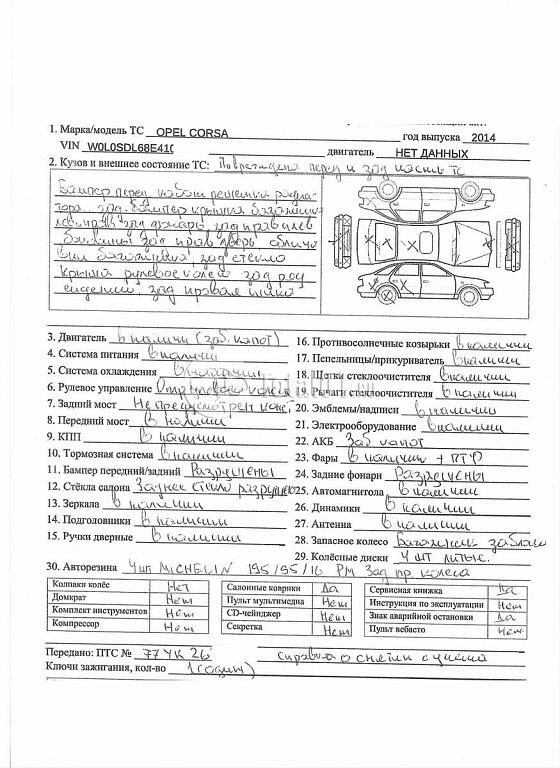 1. Марка/модель ТС OPEL CORSA год выпуска 2014
VIN W0L0SDL68E41 двигатель НЕТ ДАННЫХ
2. Кузов и внешнее состояние ТС: Повреждена перед и зад часть ТС
Бампер перед, капот решетка радиа-
тора, зад. бампер крышка багажника
зад фонарь зад прав
зад прав дверь
багажника, зад стекло
крыша рулевое колесо зад ряд
сидений, зад правая
3. Двигатель в наличии (заб. капот)
4. Система питания в наличии
5. Система охлаждения в наличии
6. Рулевое управление колеса
7. Задний мост Не предусмотрен
8. Передний мост в наличии
9. КПП в наличии
10. Тормозная система в наличии
11. Бампер передний/задний Разрушены
12. Стёкла салона Заднее стекло разрушено
13. Зеркала в наличии
14. Подголовники в наличии
15. Ручки дверные в наличии
16. Противосолнечные козырьки в наличии
17. Пепельницы/прикуриватель в наличии
18. Щетки стеклоочистителя в наличии
19. Рычаги стеклоочистителя в наличии
20. Эмблемы/надписи в наличии
21. Электрооборудование в наличии
22. АКБ Заб капот
23. Фары в наличии + ПТФ
24. Задние фонари Разрушены
25. Автомагнитола в наличии
26. Динамики в наличии
27. Антенна в наличии
28. Запасное колесо Багажник заблок
29. Колёсные диски 4 шт литые.
30. Авторезина 4шт MICHELIN 195/55/16 РМ Зад пр. колеса
Колпаки колёс Нет
Домкрат Нет
Комплект инструментов Нет
Компрессор Нет
Салонные коврики Да
Пульт мультимедиа Нет
CD-чейнджер Нет
Секретка Нет
Сервисная книжка Да
Инструкция по эксплуатации Нет
Знак аварийной остановки Да
Пульт вебасто Нет
Передано: ПТС № 77 УК 26 справка о снятии с учета
Ключи зажигания, кол-во 1 (один)